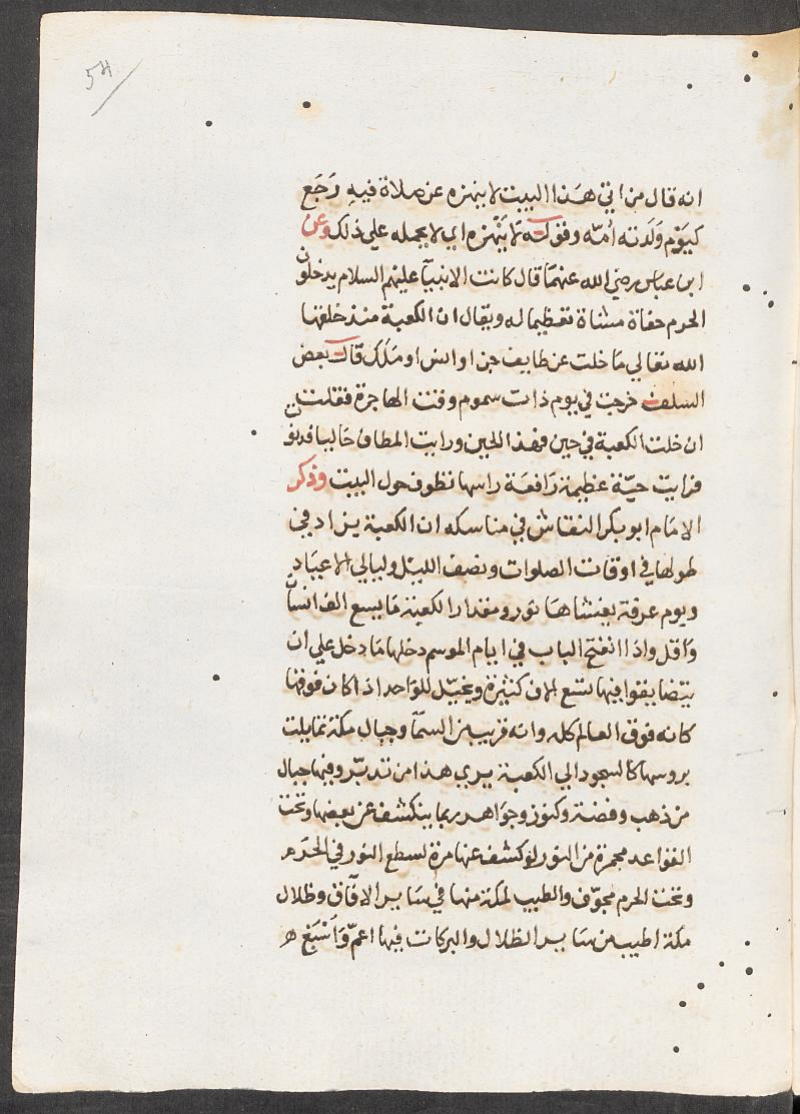 54
انه قال من اتي هذا البيت لا ينهزه عن صلاة فيه رجع
كيوم ولدته امّه وقوله لا ينهزه اي لا يحمله علي ذلك وعن
ابن عباس رضي الله عنهما قال كانت الانبيآ عليهم السلام يدخلون
الحرم حفاة مشاة تعظيما له ويقال ان الكعبة منذ خلقها
الله تعالي ما خلت عن طايف جن او انس او ملك قال بعض
السلف خرجت في يوم ذات سموم وقت الهاجرة فقلت
ان خلت الكعبة في حين فهذا الحين ورايت المطاف خاليا فدنوت
فرايت حيّة عظيمة رافعة راسها تطوف حول البيت وذكر
الامام ابو بكر النقاش في مناسكه ان الكعبة يزاد في
طولها في اوقات الصلوات ونصف الليل وليالي الاعياد
ويوم عرفة يغشاها نور ومقدار الكعبة ما يسع الف انسان
واقل واذا انفتح الباب في ايام الموسم دخلها ما دخل علي ان
يتضايقوا فيها تسع لالاف كثيرة ويخيّل للواحد اذا كان فوقها
كانه فوق العالم كله وانه قريب من السمآ وجبال مكة تمايلت
بروسها كالسجود الي الكعبة يري هذا من تدبّر وفيها جبال
من ذهب وفضة وكنوز وجواهر ربما ينكشف عن بعضها وتحت
القواعد مجمرة من النور لو كشف عنها مرة لسطع النور في الحرم
وتحت الحرم مجوّف والطيب لمكة منها في ساير الآفاق وظلال
مكة اطيب من ساير الظلال والبركات فيها اعمّ وأسبغ ه